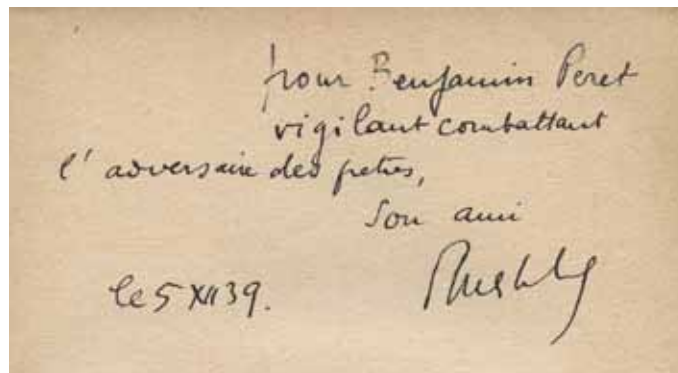 pour Benjamin Peret
vigilant combattant
l' adversaire des pretres,
Son ami
le 5 XII 39.